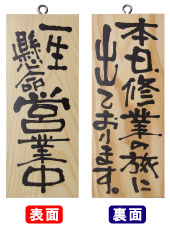 一生
懸命
営業中
本日、修業の旅に
出ております。
表面
裏面